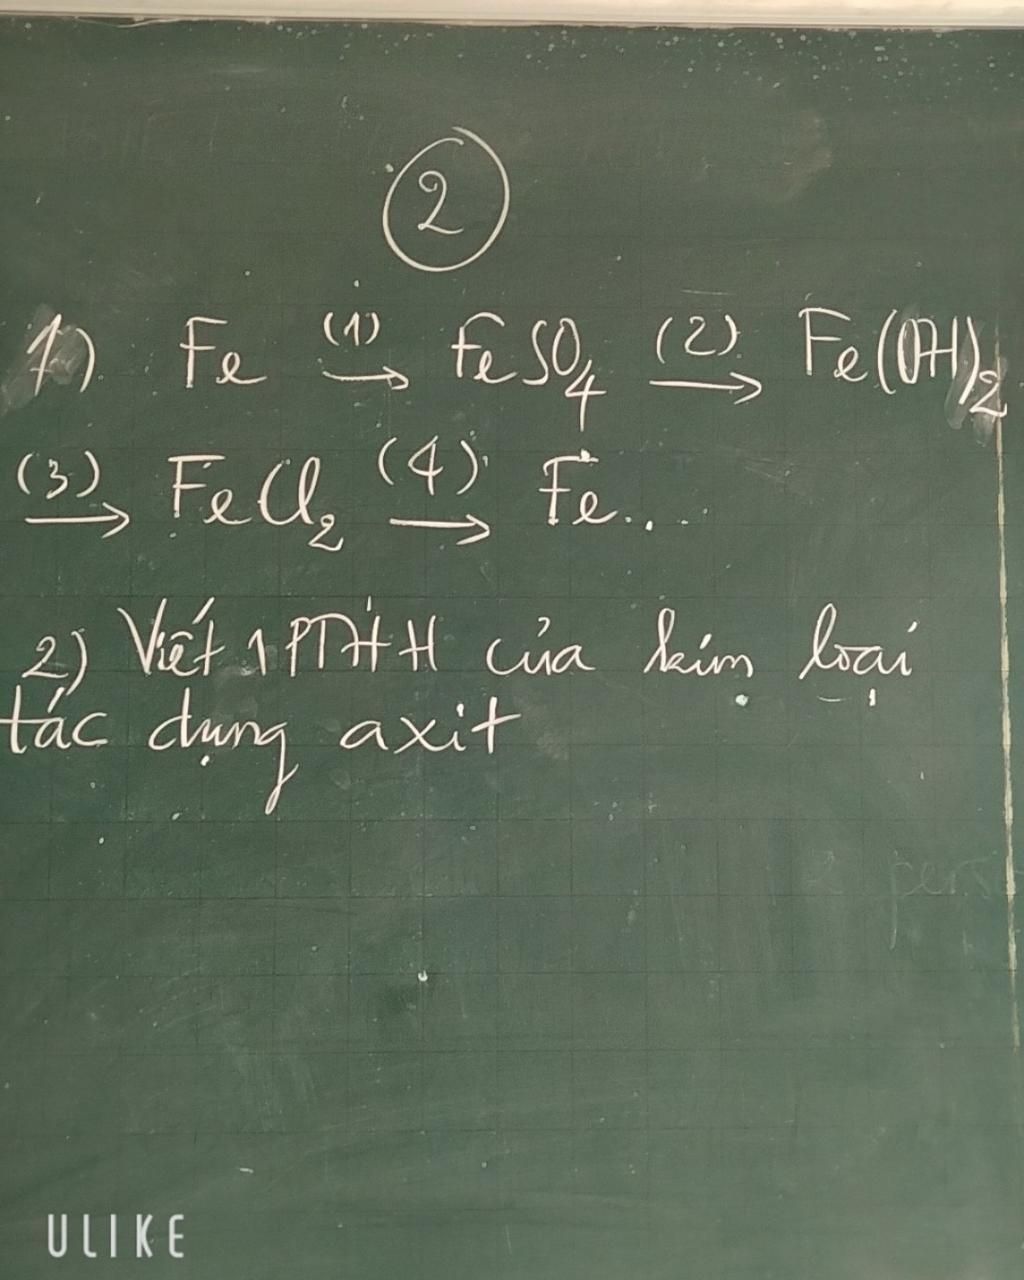 2
1) Fe (1) → FeSO₄ (2) → Fe(OH)₂
(3) → FeCl₂ (4) → Fe...
2) Viết 1 PTHH của kim loại
tác dụng axit
ULIKE